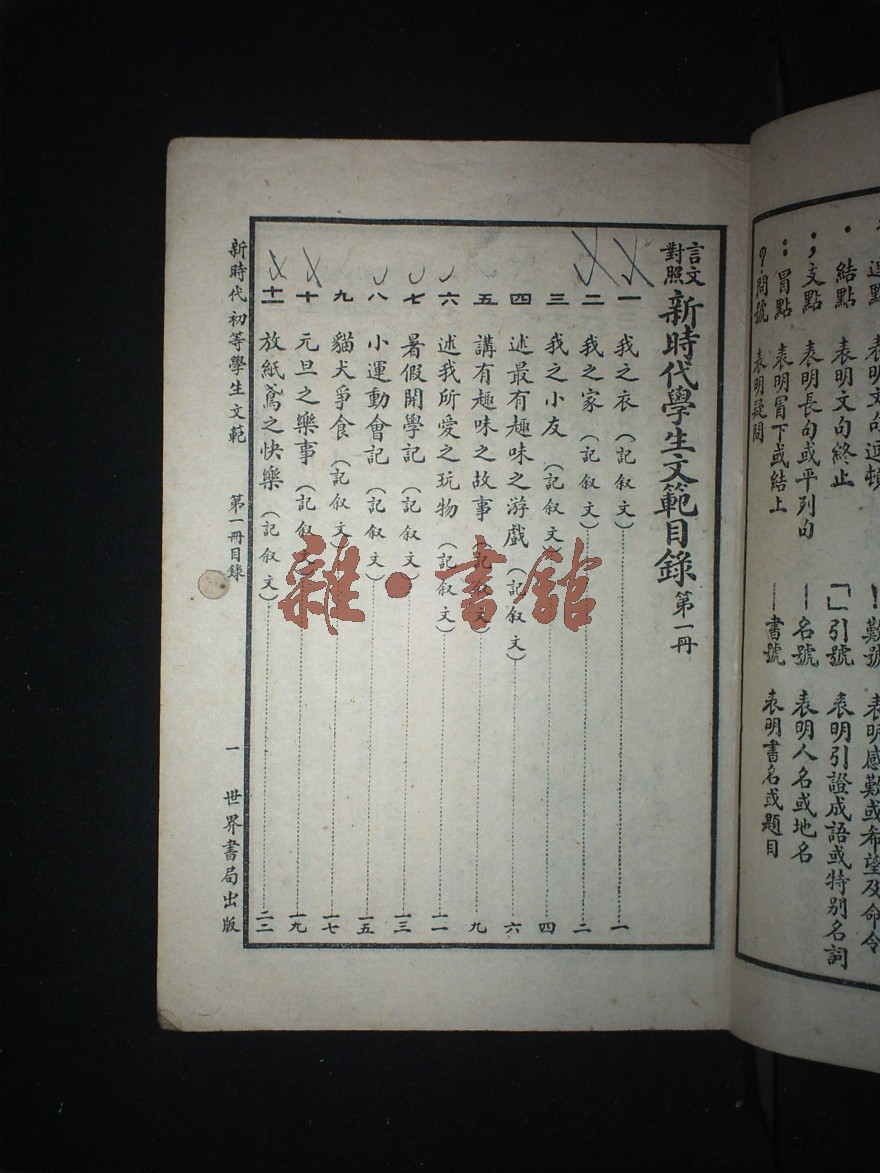 逗點 表明文句逗頓 ！歎號 表明感歎或希望及命令
．結點 表明文句終止 「」引號 表明引證成語或特別名詞
；支點 表明長句或平列句 ｜名號 表明人名或地名
：冒點 表明冒下或結上 ｜書號 表明書名或題目
？問號 表明疑問
言文對照 新時代學生文範目錄 第一冊
一 我之衣（記敘文）…………一
二 我之家（記敘文）…………二
三 我之小友（記敘文）…………四
四 述最有趣味之游戲（記敘文）…………六
五 講有趣味之故事（記敘文）…………九
六 述我所愛之玩物（記敘文）…………一一
七 暑假開學記（記敘文）…………一三
八 小運動會記（記敘文）…………一五
九 貓犬爭食（記敘文）…………一七
十 元旦之樂事（記敘文）…………一九
十一 放紙鳶之快樂（記敘文）…………二二
新時代初等學生文範 第一冊目錄 一 世界書局出版
雜·書館